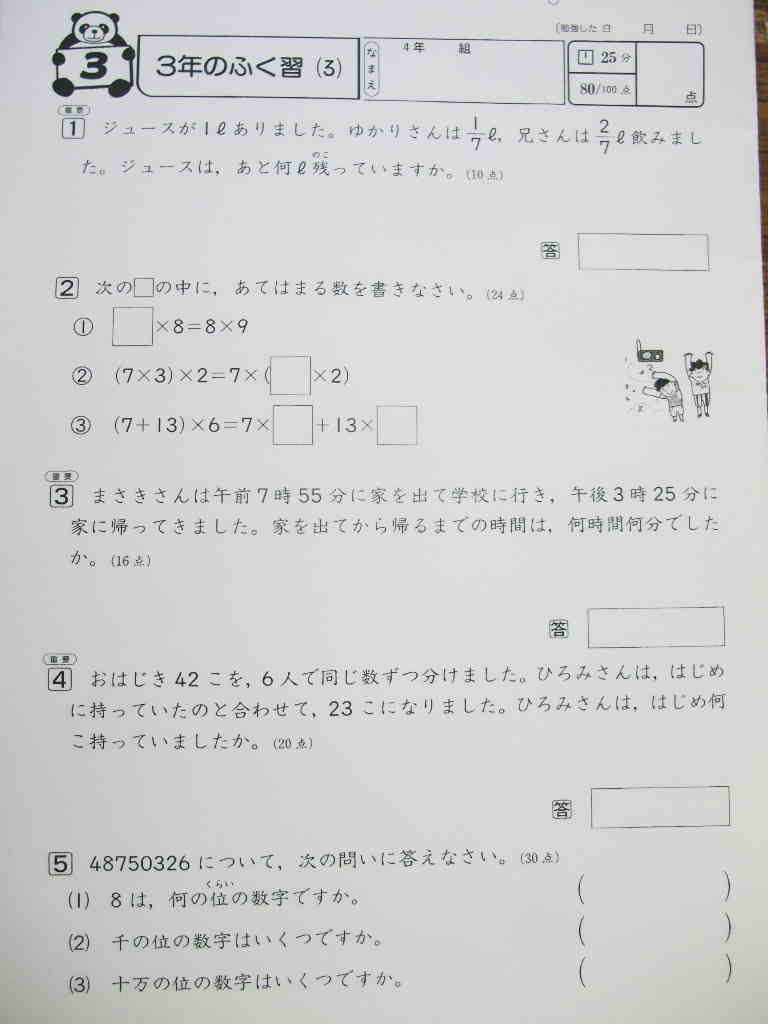 (勉強した日 月 日)
3 3年のふく習 (3) なまえ 4年 組 1 25分
80/100点 点
重要
1 ジュースが1ℓありました。ゆかりさんは1/7ℓ, 兄さんは2/7ℓ飲みまし
のこ
た。ジュースは, あと何ℓ残っていますか。(10点)
答
2 次の□の中に, あてはまる数を書きなさい。(24点)
① □×8=8×9
② (7×3)×2=7×(□×2)
③ (7+13)×6=7×□+13×□
重要
3 まさきさんは午前7時55分に家を出て学校に行き, 午後3時25分に
家に帰ってきました。家を出てから帰るまでの時間は, 何時間何分でした
か。(16点)
答
重要
4 おはじき42こを, 6人で同じ数ずつ分けました。ひろみさんは, はじめ
に持っていたのと合わせて, 23こになりました。ひろみさんは, はじめ何
こ持っていましたか。(20点)
答
5 48750326について, 次の問いに答えなさい。(30点)
くらい
(1) 8は, 何の位の数字ですか。 ( )
(2) 千の位の数字はいくつですか。 ( )
(3) 十万の位の数字はいくつですか。 ( )